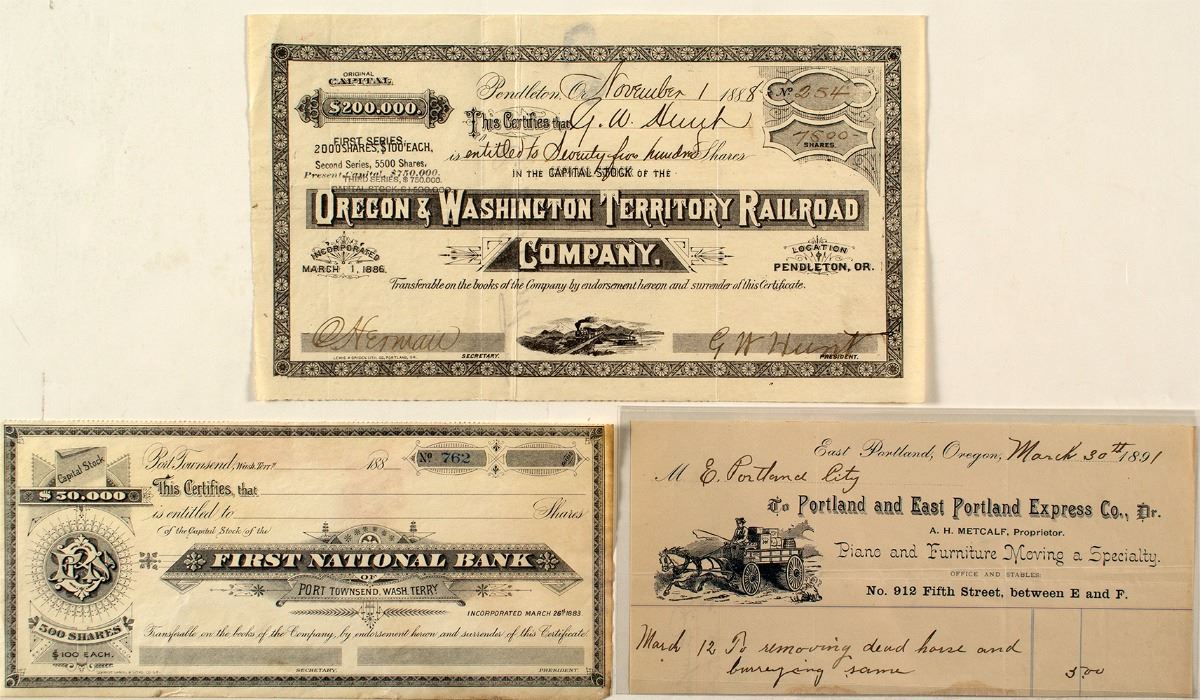 ORIGINAL
CAPITAL
$200.000.
FIRST SERIES,
2000 SHARES, $100 EACH,
Second Series, 5500 Shares,
Present Capital, $750.000.
THIRD SERIES, $750.000.
CAPITAL STOCK $1500.000
Pendleton, Or. November 1 1888
No 254
This Certifies that G. W. Hunt
7500
SHARES.
is entitled to Seventy five hundred Shares
IN THE CAPITAL STOCK OF THE
OREGON & WASHINGTON TERRITORY RAILROAD
COMPANY.
INCORPORATED
MARCH 1, 1886.
LOCATION
PENDLETON, OR.
Transferable on the books of the Company by endorsement hereon and surrender of this Certificate.
SECRETARY.
G W Hunt
PRESIDENT.
Capital Stock
$50.000
Port Townsend, Wash. Terry 188
No 762
This Certifies, that
is entitled to Shares
of the Capital Stock of the
FIRST NATIONAL BANK
OF
PORT TOWNSEND, WASH. TERRY
INCORPORATED MARCH 26th 1883.
500 SHARES
$100 EACH.
Transferable on the books of the Company, by endorsement hereon and surrender of this Certificate.
SECRETARY.
PRESIDENT.
East Portland, Oregon, March 30th 1891
M E. Portland City
To Portland and East Portland Express Co., Dr.
A. H. METCALF, Proprietor.
Piano and Furniture Moving a Specialty.
OFFICE AND STABLES:
No. 912 Fifth Street, between E and F.
March 12 To removing dead horse and
burreying same 5.00